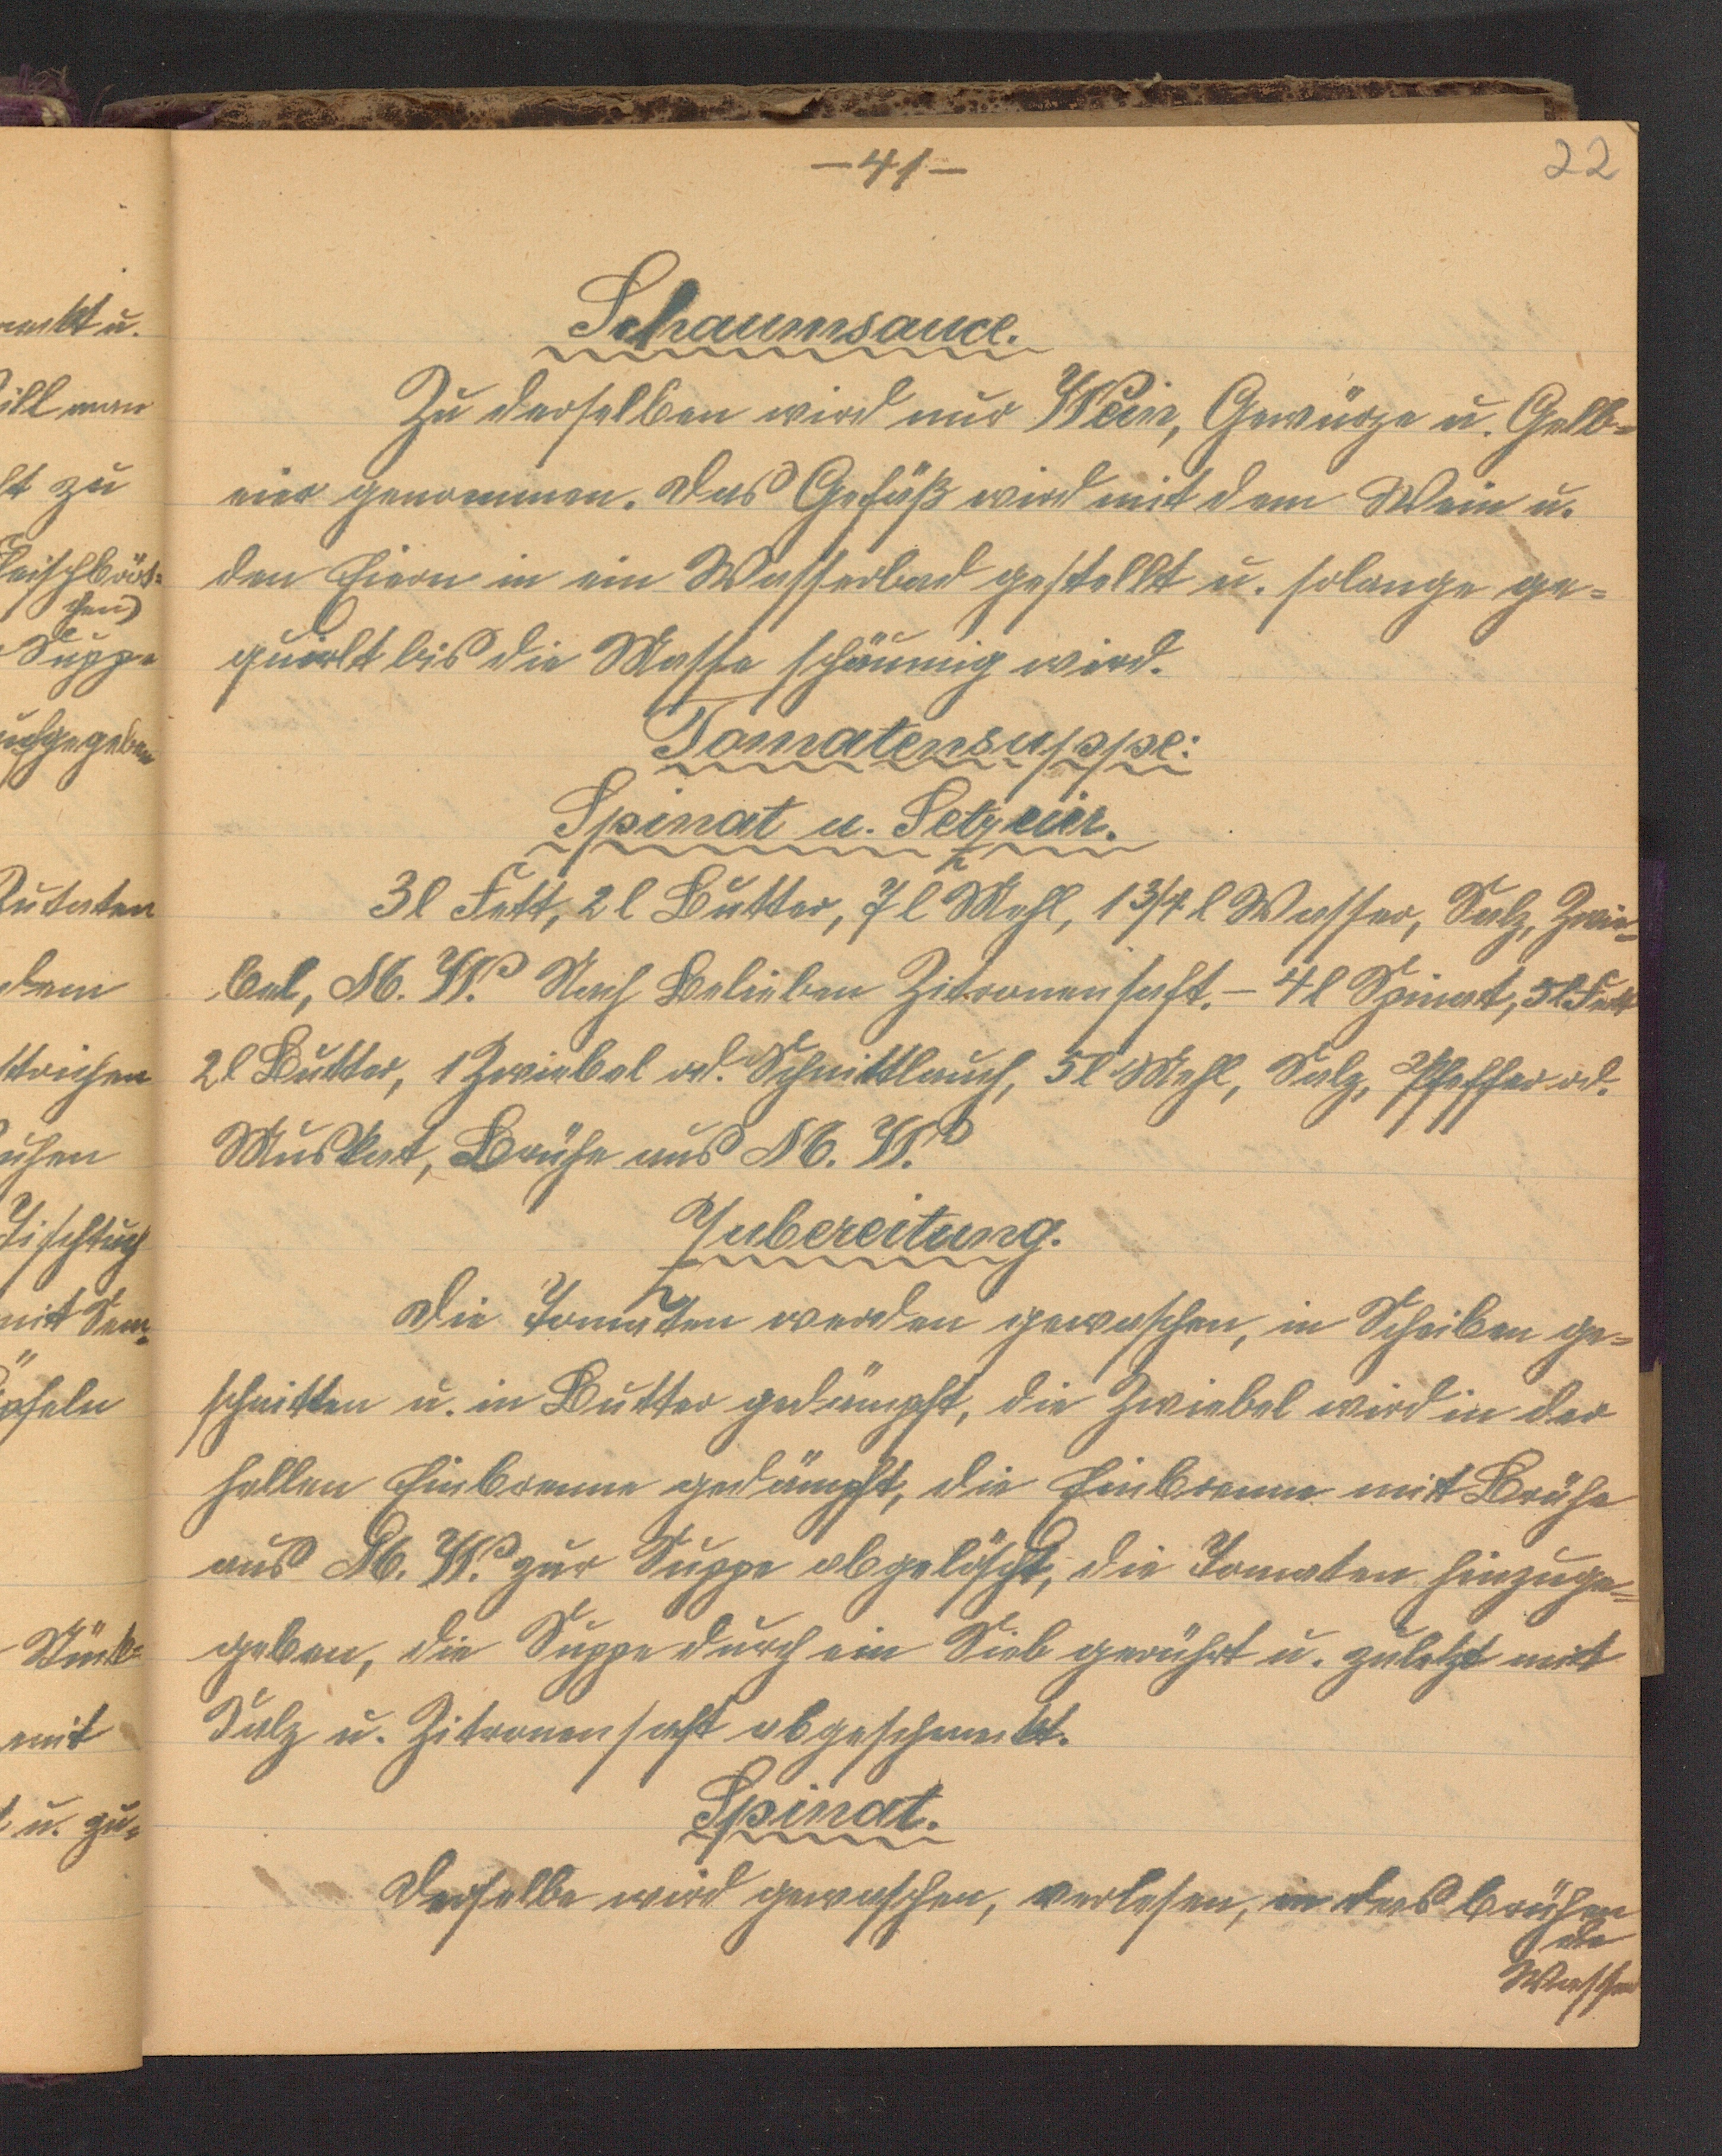 – 41 –
22
Schaumsauce.
Zu derselben wird nur Wein, Gewürze u. Gelb=
eier genommen. Das Gefäß wird mit dem Wein u.
den Eiern in ein Wasserbad gestellt u. solange ge=
quirlt bis die Masse schäumig wird.
Tomatensuppe:
Spinat u. Setzeier.
3 l Fett, 2 l Butter, 7 l Mehl, 1 3/4 l Wasser, Salz, Zwie=
bel, M. W. Nach Belieben Zitronensaft. – 4 l Spinat, 5 l Fett
2 l Butter, 1 Zwiebel od. Schnittlauch, 5 l Mehl, Salz, Pfeffer od.
Muskat, Brühe aus M. W.
Zubereitung.
Die Tomaten werden gewaschen, in Scheiben ge=
schnitten u. in Butter gedämpft, die Zwiebel wird in der
hellen Einbrenne gedämpft, die Einbrenne mit Brühe
aus M. W. zur Suppe abgelöscht, die Tomaten hinzuge=
geben, die Suppe durch ein Sieb gerührt u. zuletzt mit
Salz u. Zitronensaft abgeschmeckt.
Spinat.
Derselbe wird gewaschen, verlesen, in das brühen
de
Wasser